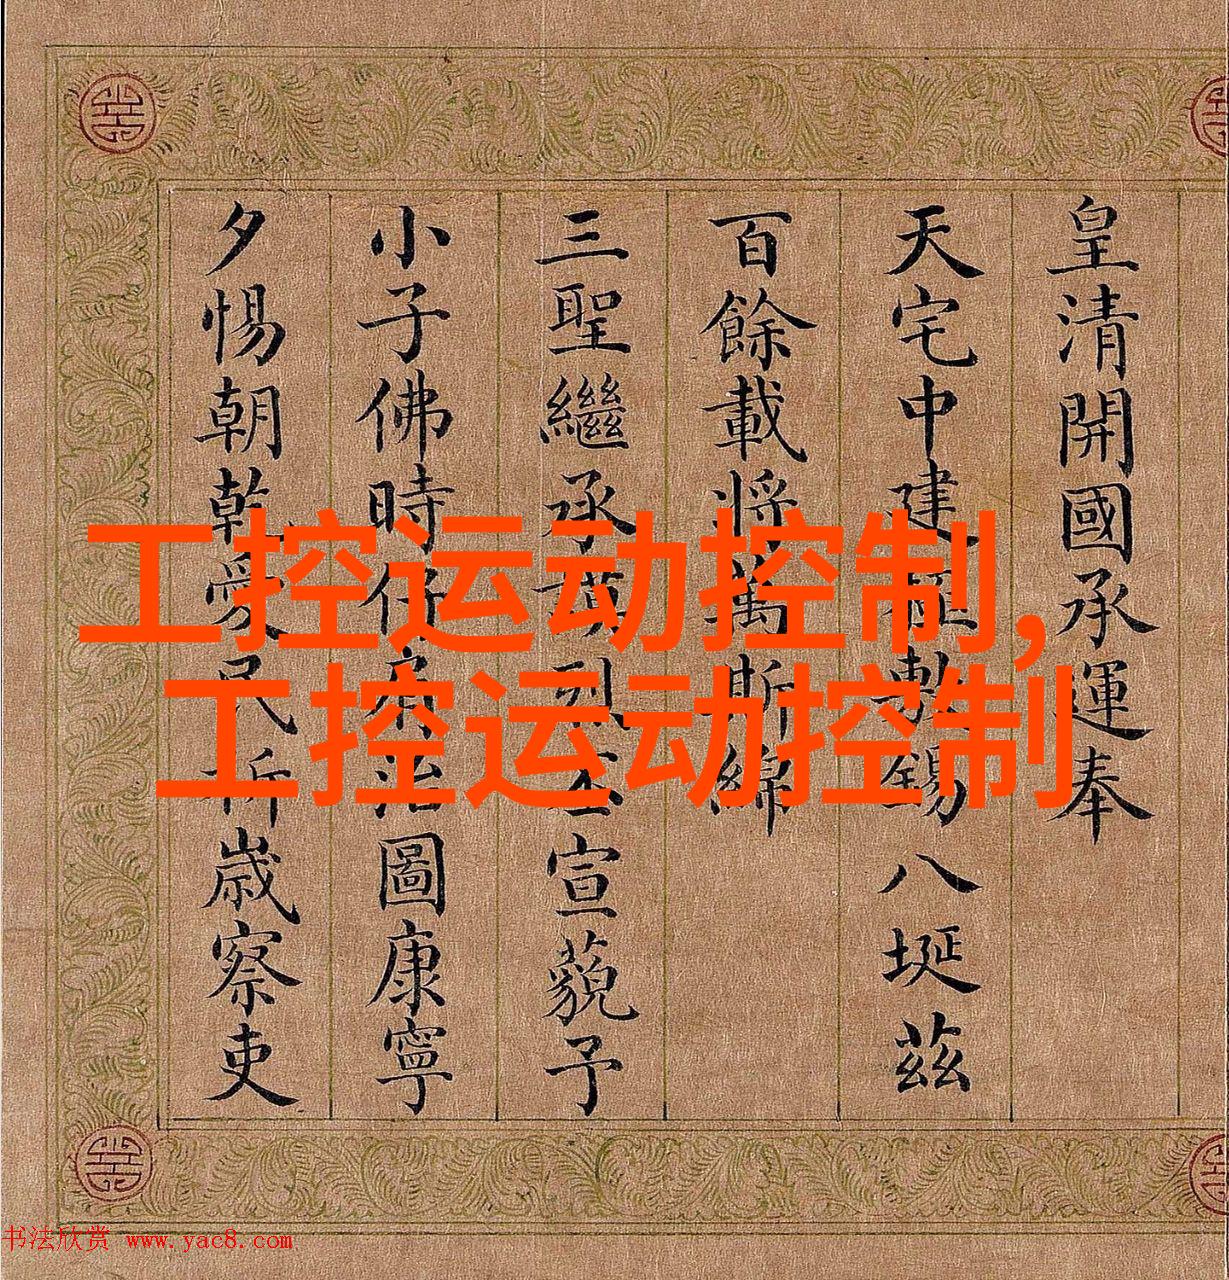 工控运动控制,
工控运动控制
皇清開國承運奉
天宅中建極敷錫八埏茲
百餘載將萬斯綿
三聖繼承謨烈丕宣藐予
小子佛時仔肩治圖康寧
夕惕朝乾愛民祈歲察吏
书法欣赏 www.yac8.com